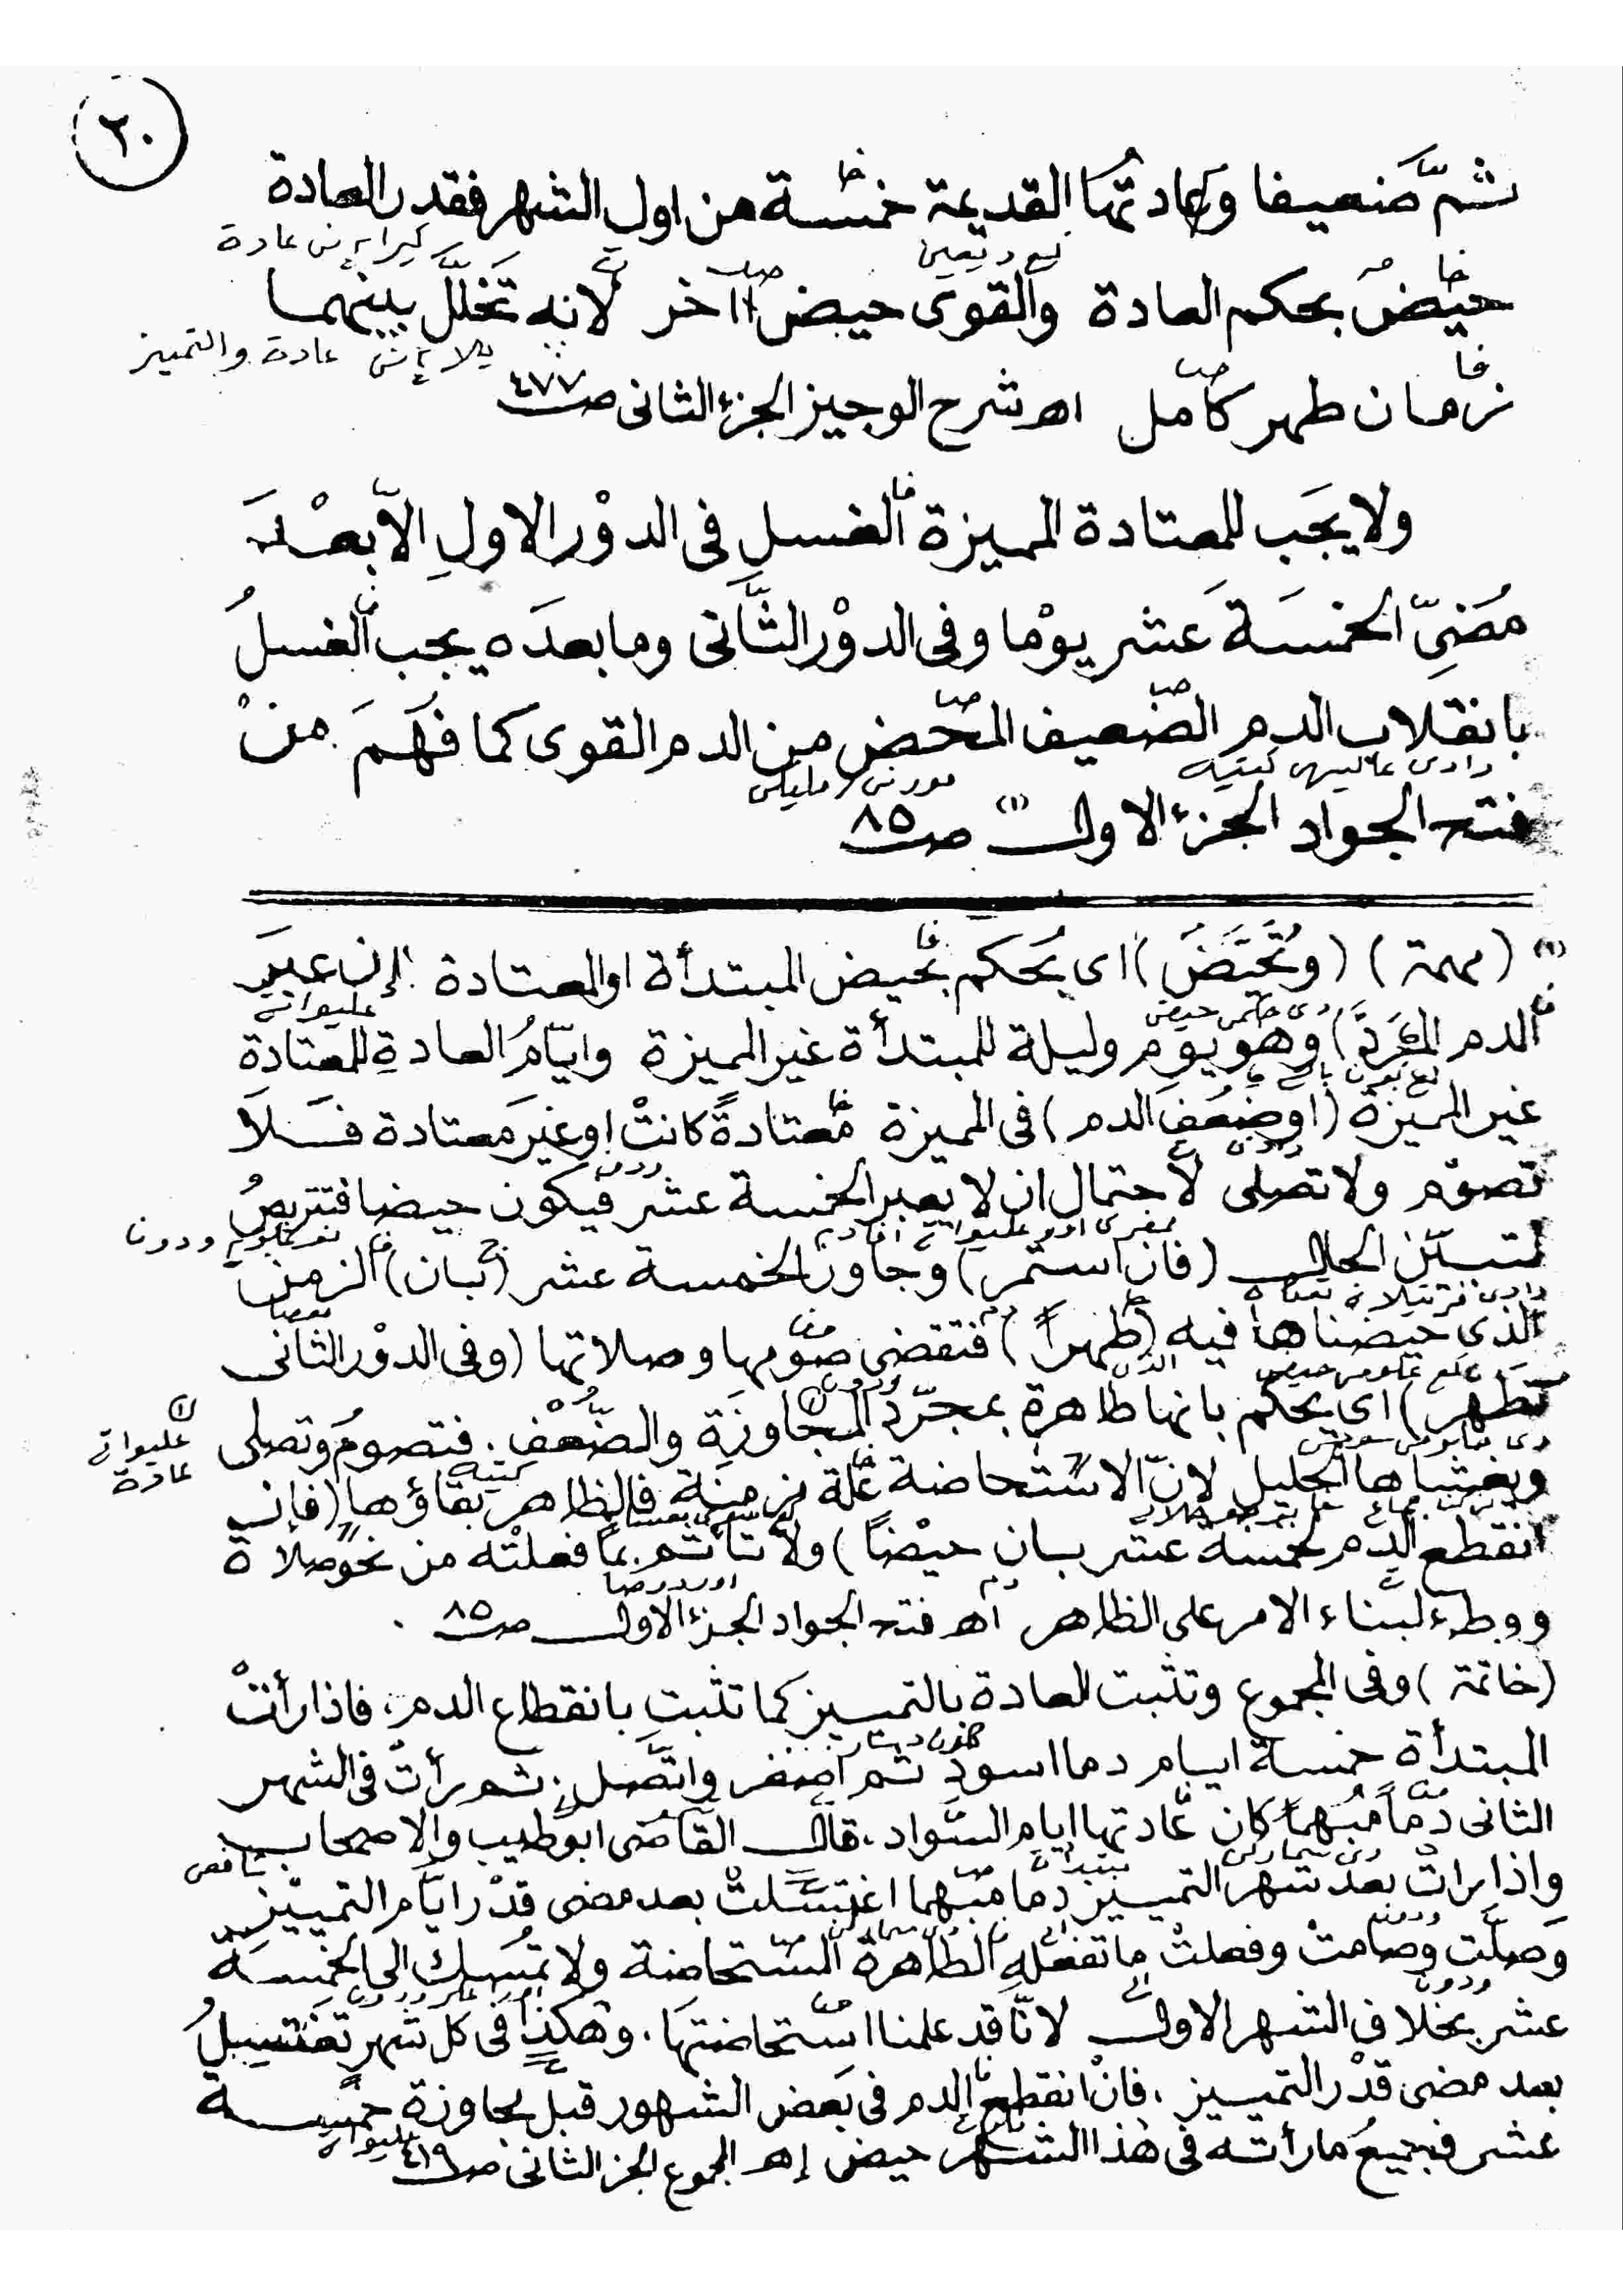 ٢٠
ثمّ ضعيفا وعادتُها القديمة خمسة من اول الشهر فقدر العادة
حيضٌ بحكم العادة والقوى حيض اخر لانه تَخَلَّلَ بينهما
زمان طهر كامل اهـ شرح الوجيز الجزء الثانى صـ ٤٧٧
ولا يَجَب للمعتادة المميزة الغسلِ فى الدوْر الاولِ الاّ بعْدَ
مُضِىّ الخمسَة عَشر يوْما وفى الدوْر الثَّانى وما بعدَه يجب الغسلُ
بانقلاب الدم الضّعيف المحْض من الدم القوى كما فَهَمَ منْ
فتح الجواد الجزء الاول (١) صـ ٨٥
(١) (مهمة) (وتُحَيَّضَ) اى يَحكم بحيض المبتدأة او المعتادة إن عبَرَ
الدم المَرَدَّ) وهو يوم وليلة للمبتدأة غير المميزة وايّامُ العادةِ للمعتادة
غير المميزة (او ضَعَفَ الدم) فى المميزة مُعتادةً كانتْ او غيرَ معتادة فَلاَ
تصوم ولا تصلى لاحتمال ان لا يعبر الخمسة عشر فيكون حيضا فتتربصُ
لتبيّن الحال (فان استمر) وجاوز الخمسة عشر (بان) الزمن
الذى حيضناها فيه (طهراً) فتقضى صوْمها وصلاتها (وفى الدوْر الثانى
تَطهر) اى يحكم بانها طاهرة بمجرّد المجاوزَة والضّعْف. فتصومُ وتصلى
ويغشاها الحليل لانّ الاسْتحاضة عّلة مزمنة فالظاهر بقاؤها (فان
انقطع الدم لخمسة عشر بان حيْضاً) ولا تأثم بما فعلتْه من نحو صلاة
ووطء لبناء الامر على الظاهر اهـ فتح الجواد الجزء الاول صـ ٨٥ .
(خاتمة) وفى المجموع وتثبت العادة بالتمييز كما تثبت بانقطاع الدم، فاذا رأتْ
المبتدأة خمسة ايام دما اسود ثم اصفر واتّصل، ثم رأت فى الشهر
الثانى دَماً مُبْهما كان عَادتها ايام السّواد، قال القاضى ابو طيب والاصحاب
واذا رات بعد شهر التمييز دما مبْهما اغتسَلتْ بعد مضى قدْر ايّام التمييْز
وَصلّت وصامتْ وفعلتْ ما تفعله الطاهرة المسْتحاضة ولا تمسك الى الخمسَة
عشر بخلاف الشهر الاول لانّا قد علمنا اسْتحاضتهَا، وهكذا فى كل شهرٍ تغتسِلُ
بعد مضى قدْر التمييز، فانْ انقطع الدم فى بَعض الشهور قبل مجاوزة خمسة
عشر فجميعُ ما رأته فى هذا الشهر حيض إهـ المجموع الجز الثانى صـ ٤١٩